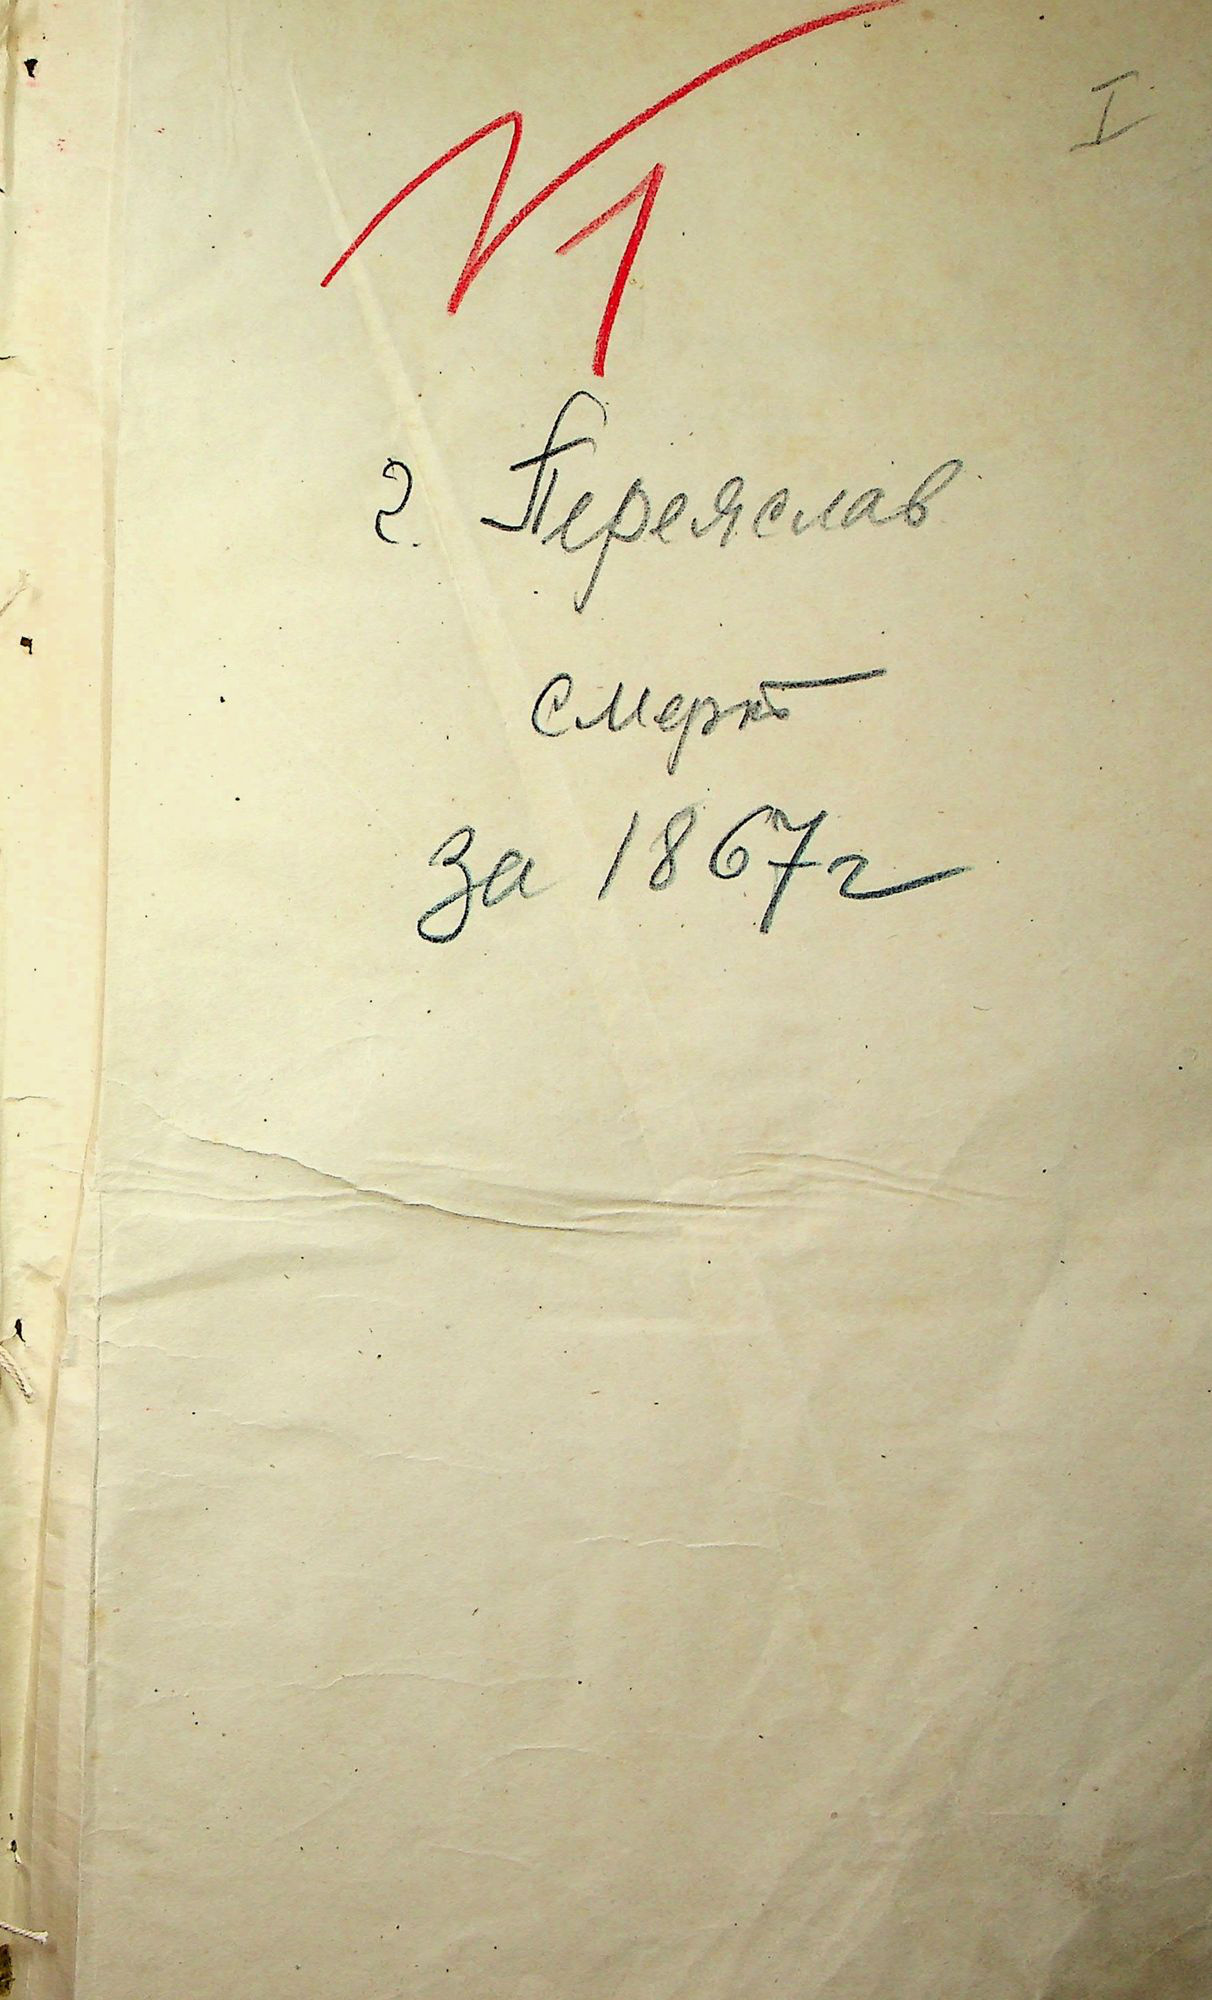 I
N1
г. Переяслав
смерть
за 1867г